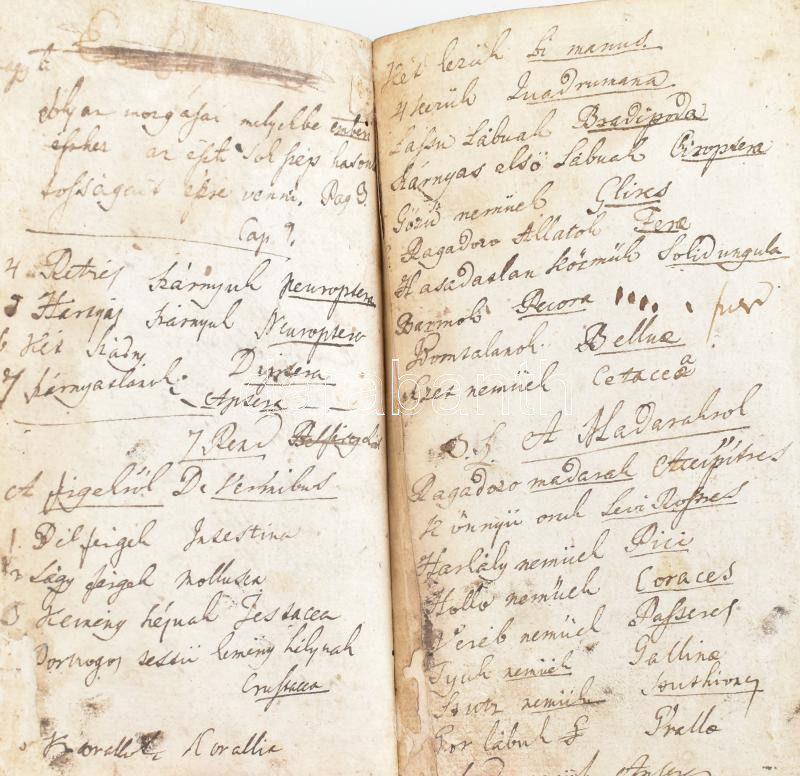 olyan mozgásai melyekbe emberi
Pag 3.
Cap 9.
4 Retzés szárnyuk Neuroptera
5 Hartyás szárnyuk Neuroptera
6 Két szárny Diptera
7 szárnyaslanok Aptera
7 Rend
A férgekről De Vermibus
1. Bél férgek Intestina
2 Lágy férgek mollusca
3 Kemény héjuak Testacea
testü kemény héjuak
Crustacea
5 Korallia
Két kezük bi manus.
4 kezük Quadrumana
Lassu Lábuak Bradipoda
Szárnyas első Lábuak Ciroptera
nemüek Glires
Ragadozo Állatok Feræ
Hasadatlan körmük Solidungula
Barmok Pecora
Bellue
nemüek Cetaceæ
A Madarakrol
Ragadozo madarak Accipitres
Könnyü oruk Levi Rostres
Harkály nemüek Pici
Hollo nemüek Coraces
Veréb nemüek Passeres
Tyuk nemüek Gallinæ
nemüek Struthiones
lábuk Grallæ
Anseres